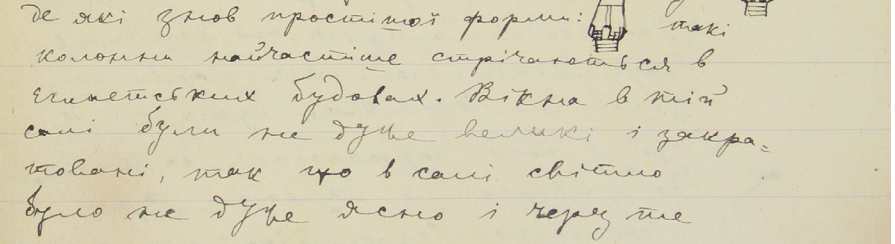 де які знов простіщої форми: такі
колонни найчастіще стрічаються в
египетських будовах. Вікна в тій
салі були не дуже великі і закра-
товані, так що в салі світло
було не дуже ясно і через те